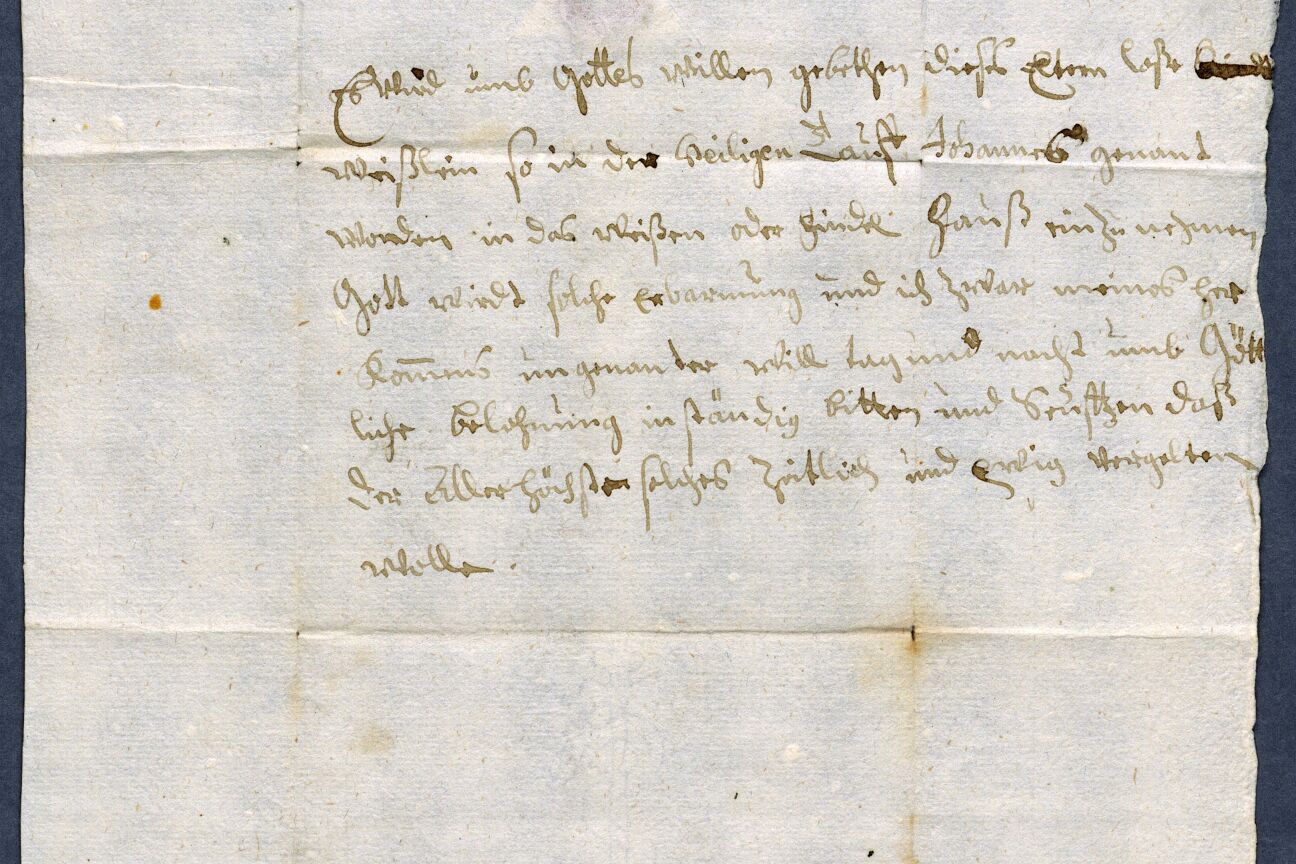 Es Wird umb Gottes willen gebethen dieses Eltern lose
weißlein so in der heiligen Tauff Johannes genant
worden in das weißen oder findel Hauß ein zu nehmen
Gott wirdt solche Erbarmung und ich zwar meines her
Kom̅ens ungenander will tag und nacht umb Gött
liche belohnung inständig bitten und Seufftzen daß
der Allerhöchste solches Zeitlich und Ewig vergelten
wolle.